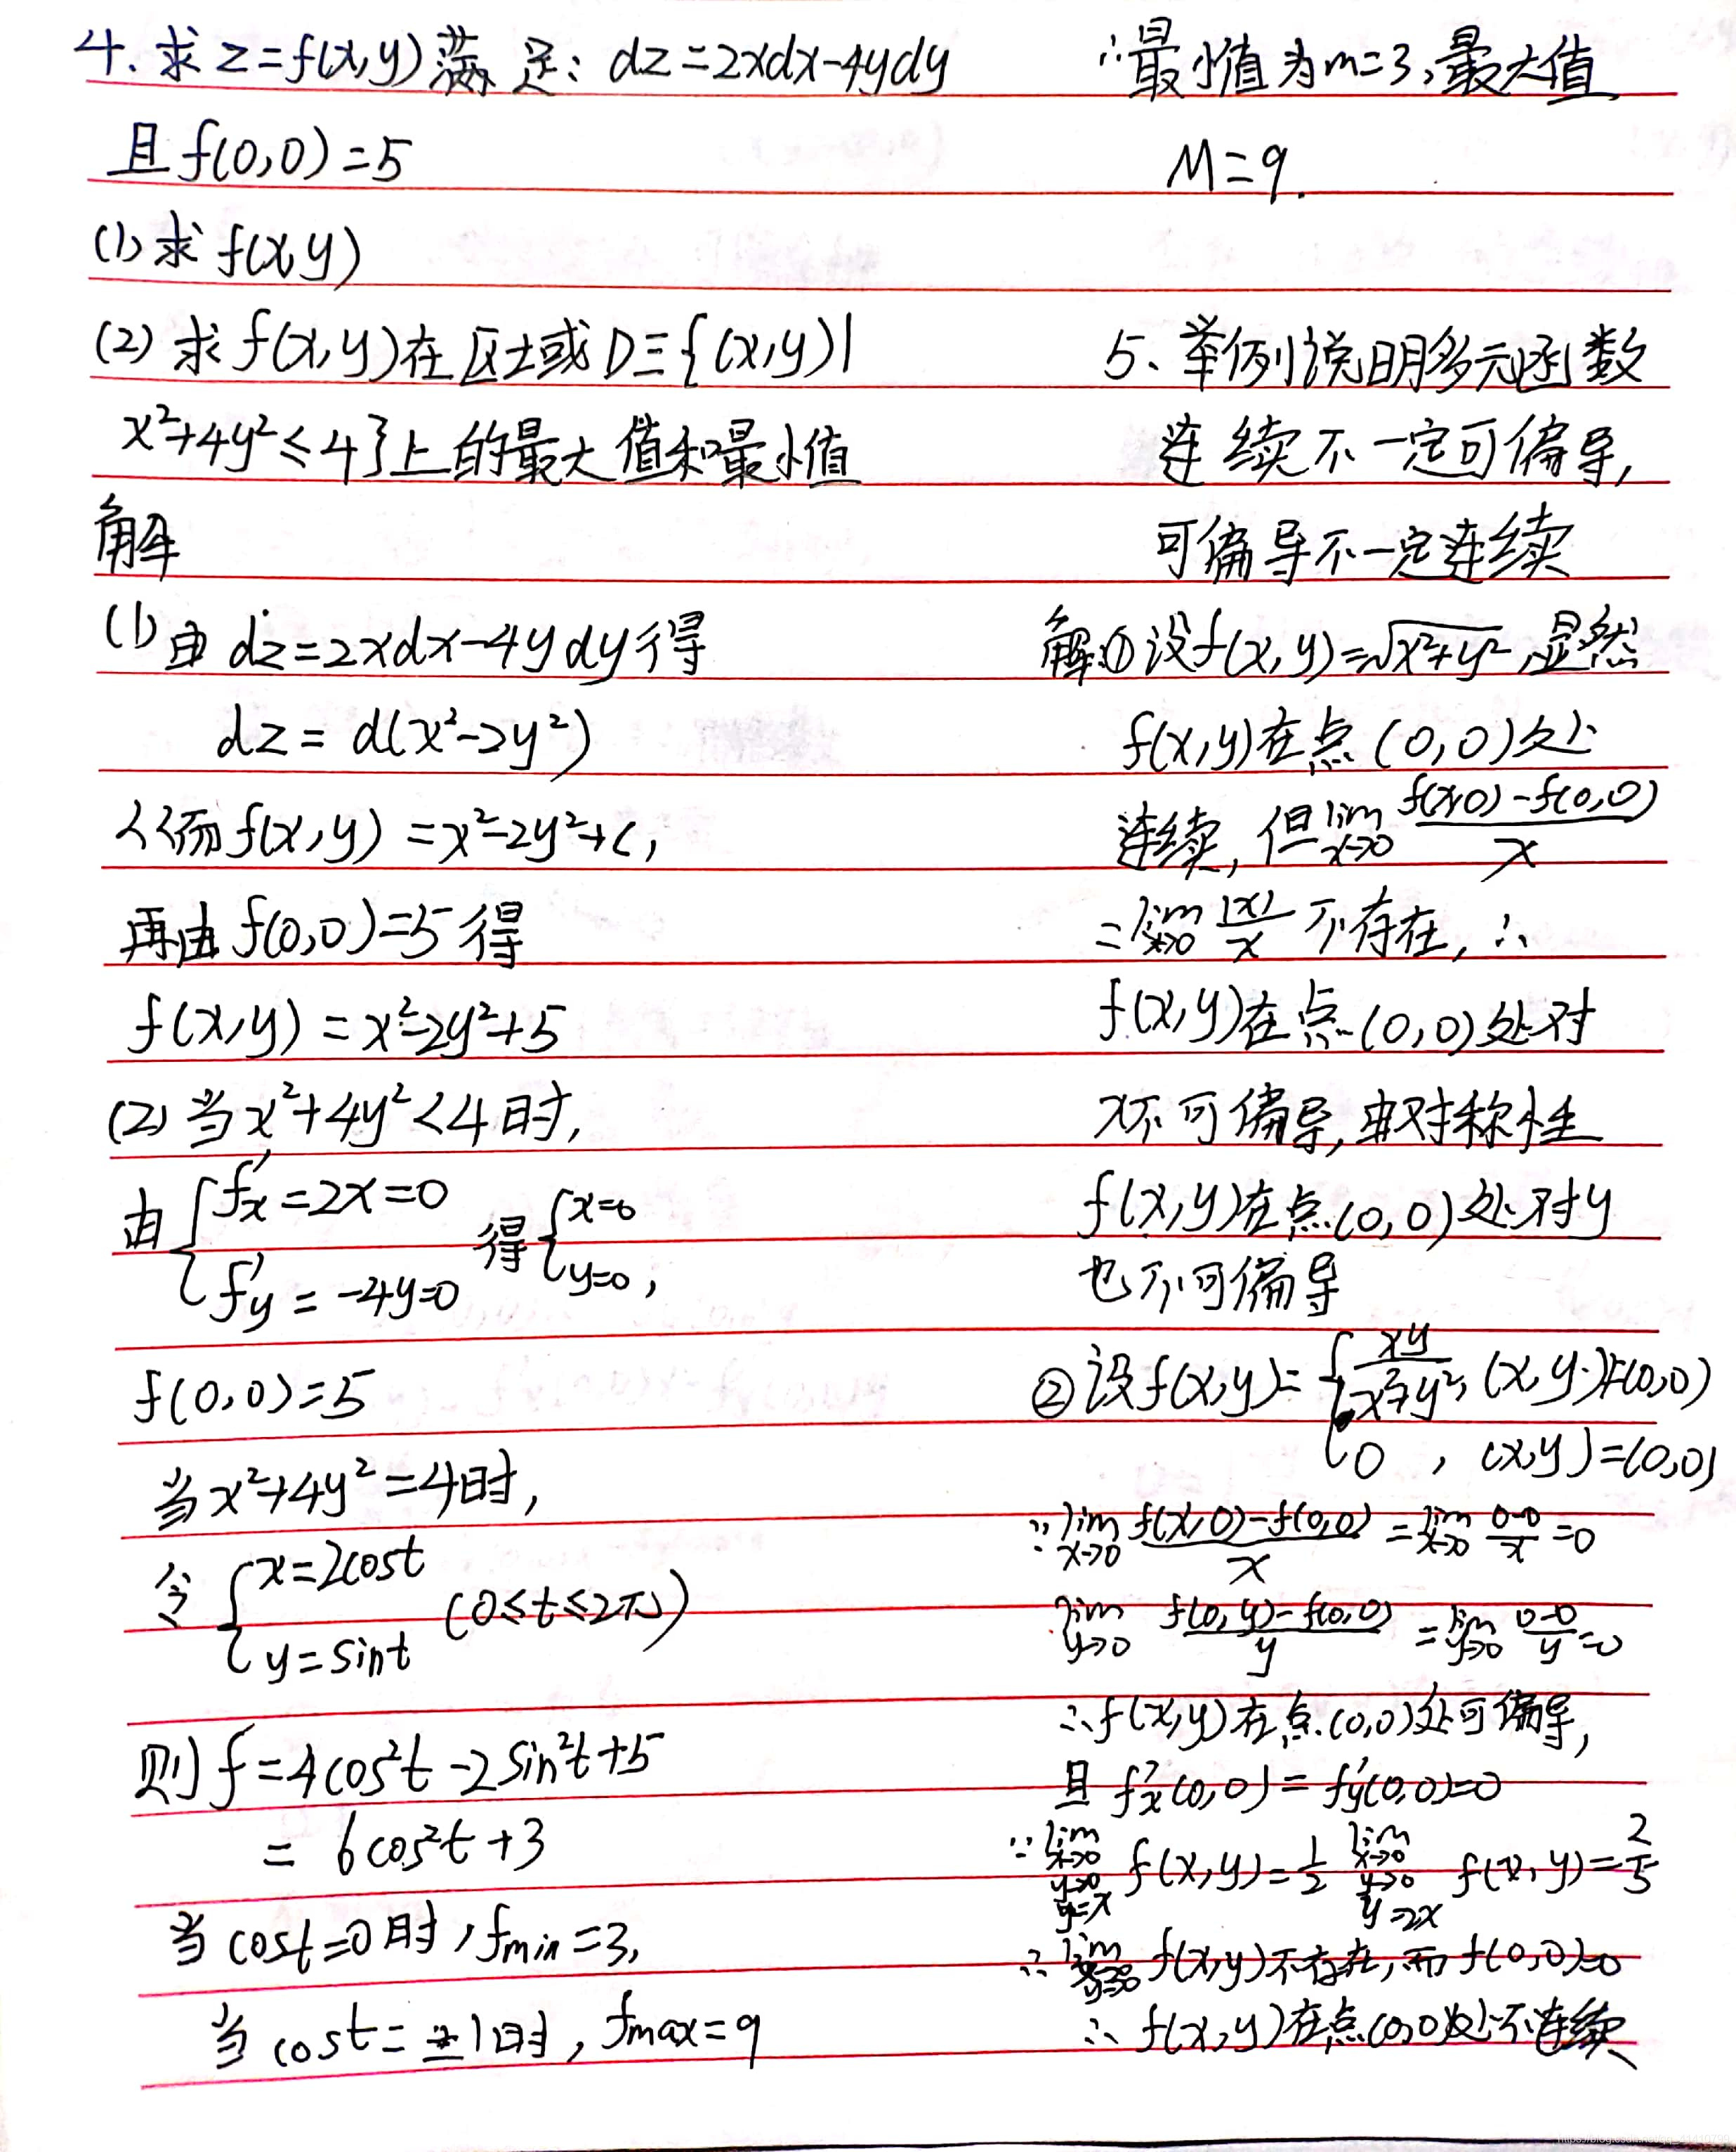 4. 求z=f(x,y)满足: dz=2xdx-4ydy
且f(0,0)=5
(1)求f(x,y)
(2)求f(x,y)在区域D={(x,y)|
x²+4y²≤4}上的最大值和最小值
解
(1)由dz=2xdx-4ydy得
dz=d(x²-2y²)
从而f(x,y)=x²-2y²+c,
再由f(0,0)=5得
f(x,y)=x²-2y²+5
(2)当x²+4y²<4时,
由{f'x=2x=0 f'y=-4y=0 得{x=0 y=0,
f(0,0)=5
当x²+4y²=4时,
令{x=2cost y=sint (0≤t≤2π)
则f=4cos²t-2sin²t+5
=6cos²t+3
当cost=0时,fmin=3,
当cost=±1时,fmax=9
∴最小值为m=3,最大值
M=9.
5、举例说明多元函数
连续不一定可偏导,
可偏导不一定连续
解:①设f(x,y)=√(x²+y²),显然
f(x,y)在点(0,0)处
连续,但lim x→0 (f(x,0)-f(0,0))/x
=lim x→0 |x|/x 不存在,∴
f(x,y)在点(0,0)处对
x不可偏导,由对称性
f(x,y)在点(0,0)处对y
也不可偏导
②设f(x,y)={xy/(x²+y²), (x,y)≠(0,0)
0, (x,y)=(0,0)
∵lim x→0 (f(x,0)-f(0,0))/x=lim x→0 (0-0)/x=0
lim y→0 (f(0,y)-f(0,0))/y=lim y→0 (0-0)/y=0
∴f(x,y)在点(0,0)处可偏导,
且f'x(0,0)=f'y(0,0)=0
∵lim x→0 y→0 y=x f(x,y)=1/2 lim x→0 y→0 y=2x f(x,y)=2/5
∴lim x→0 y→0 f(x,y)不存在,而f(0,0)=0
∴f(x,y)在点(0,0)处不连续